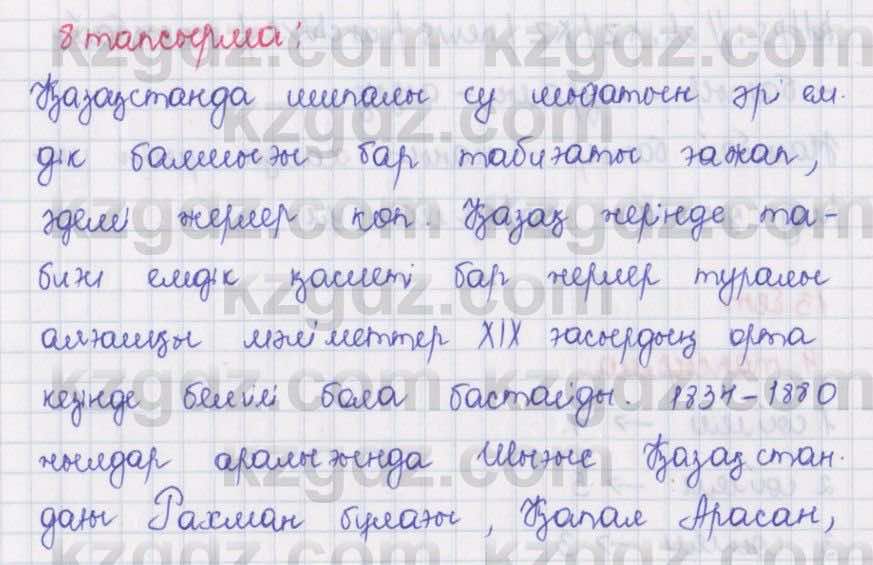 8 тапсырма:
Қазақстанда шипалы су шығатын әрі ем-
дік балшығы бар табиғаты ғажап,
әдемі жерлер көп. Қазақ жерінде та-
биғи емдік қасиеті бар жерлер туралы
алғашқы мәліметтер XIX ғасырдың орта
кезінде белгілі бола бастайды. 1834-1880
жылдар аралығында Шығыс Қазақстан-
дағы Рахман бұлағы, Қапал Арасан,
kzgdz.com